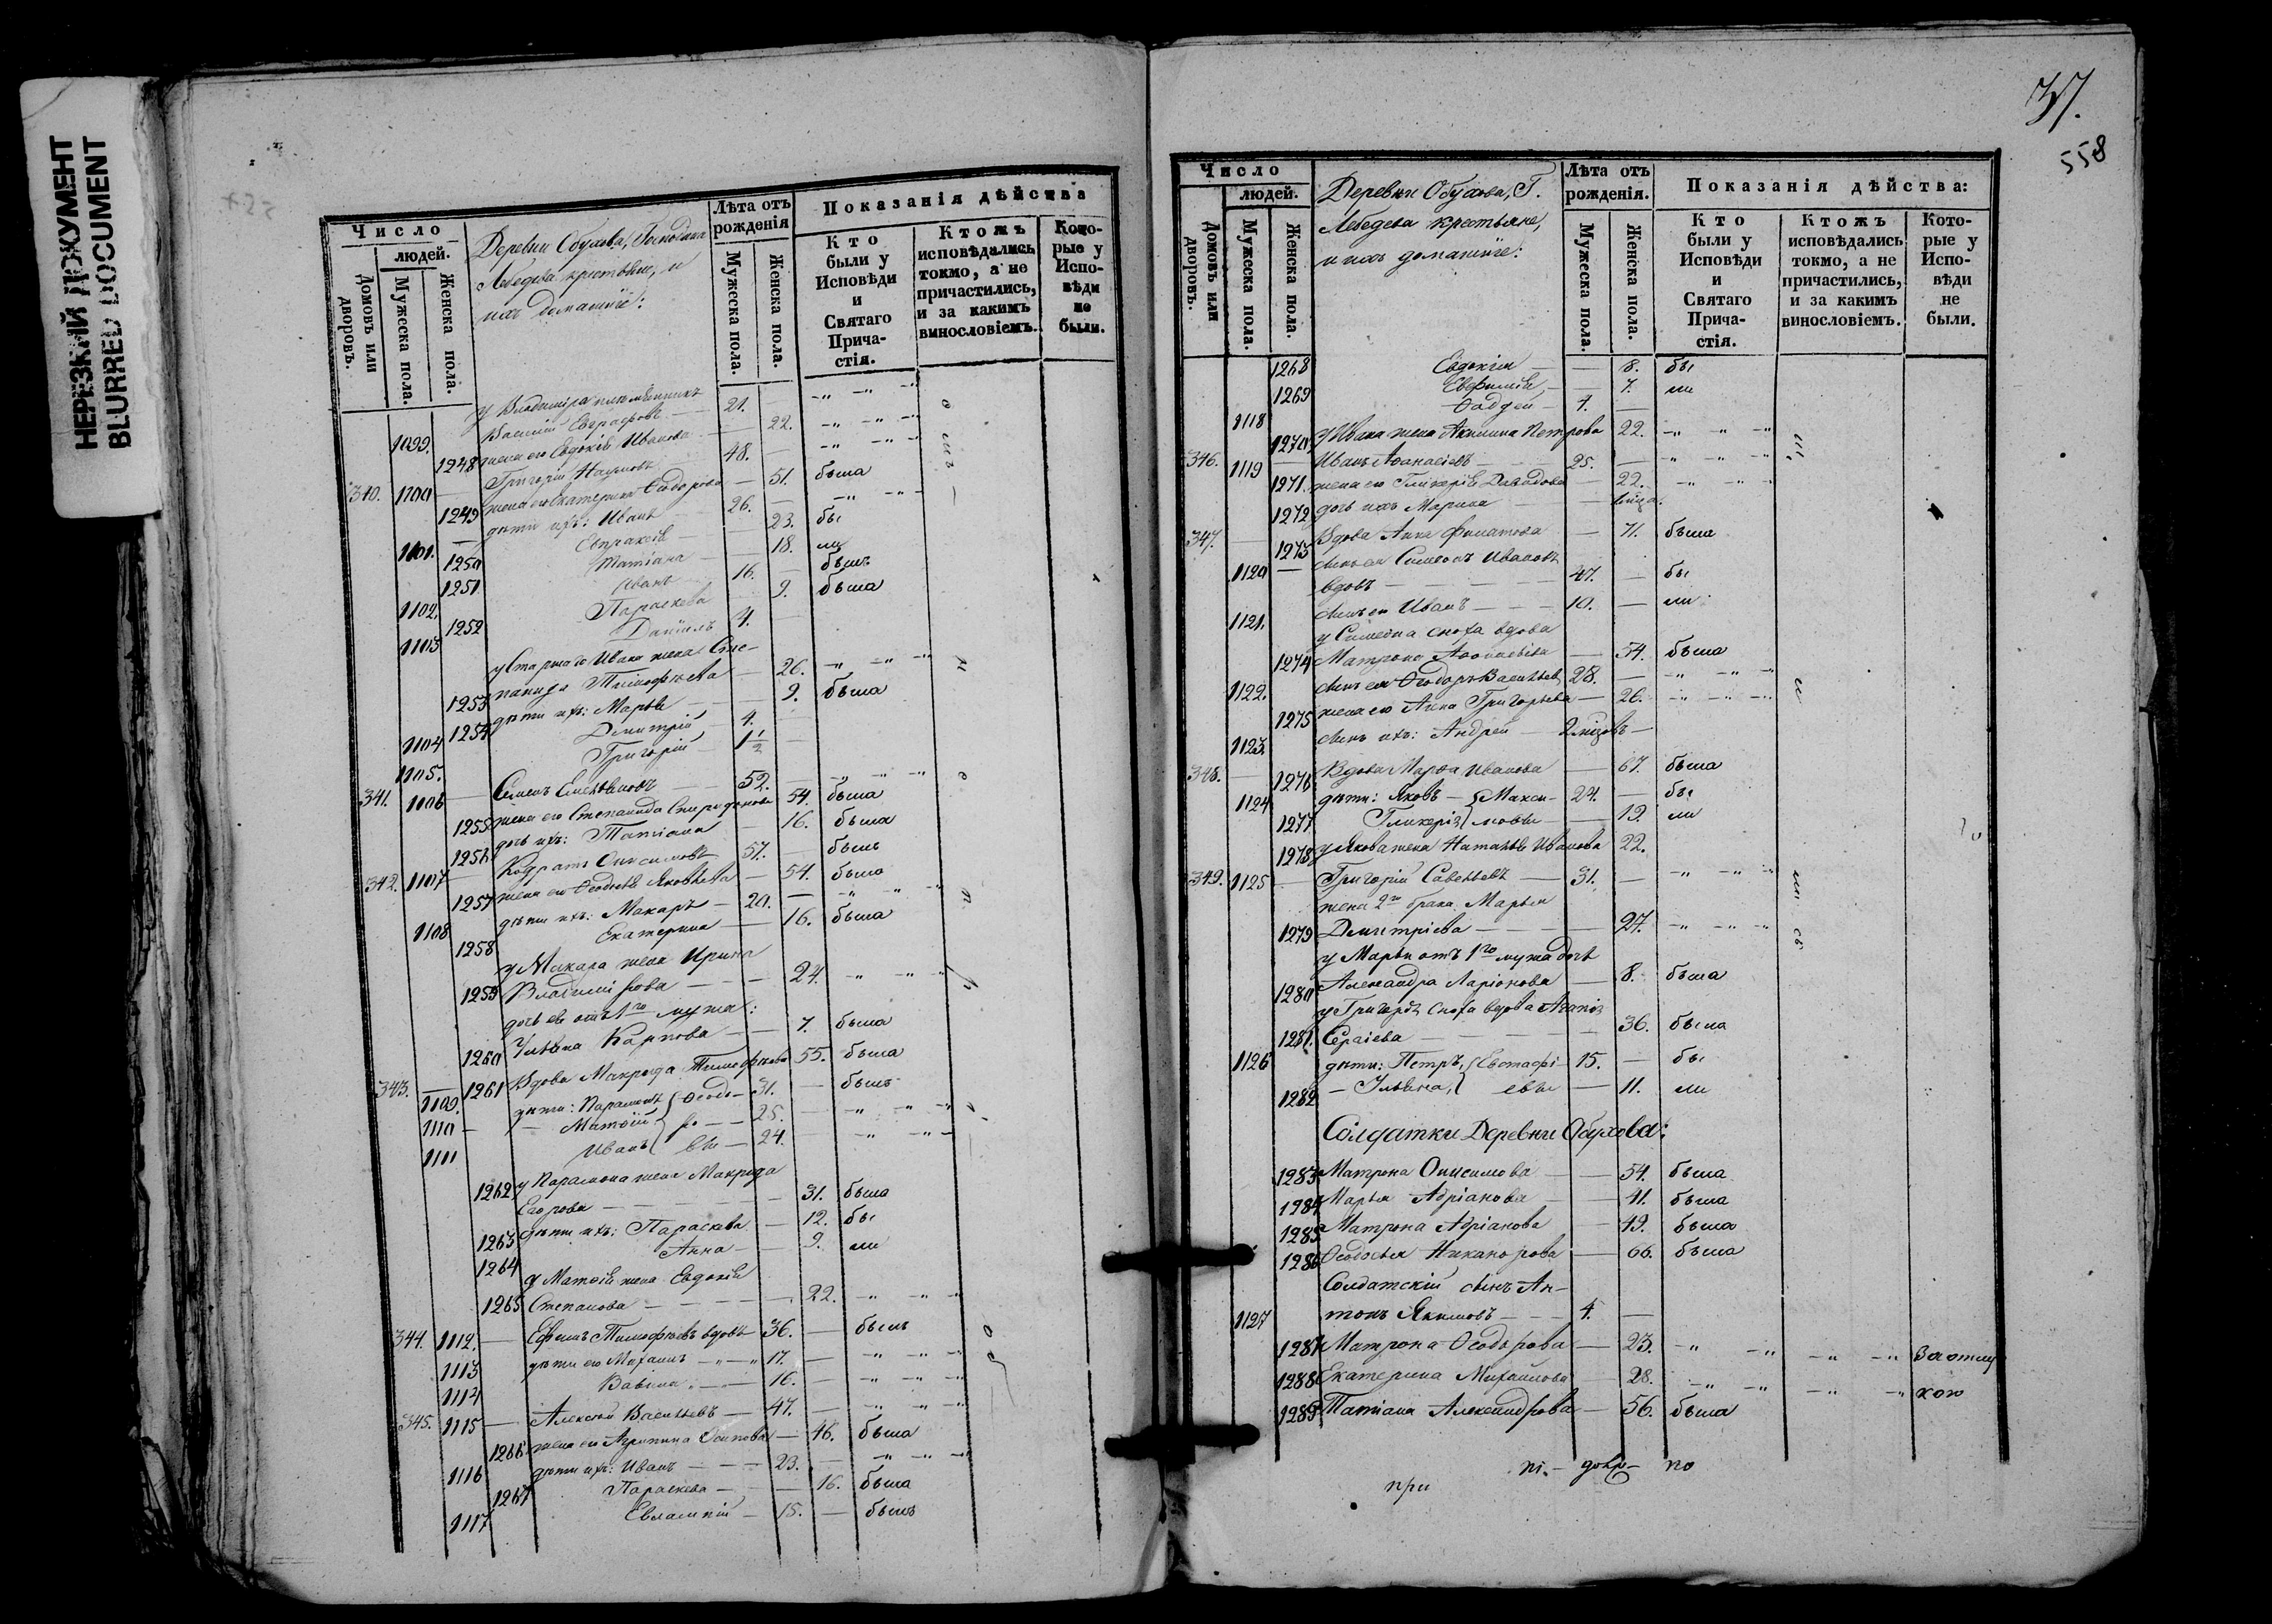 НЕРЕЗКИЙ ДОКУМЕНТ
BLURRED DOCUMENT
Число
людей.
Домовъ или дворовъ.
Мужеска пола.
Женска пола.
Деревни Обухова, Господина
Лебедева крестьяне, и
ихъ домашніе:
Лѣта отъ рожденія
Мужеска пола.
Женска пола.
Показанія дѣйства
Кто были у Исповѣди и Святаго Причастія.
Ктожъ исповѣдались токмо, а не причастились, и за какимъ винословіемъ.
Которые у Исповѣди не были.
у Владиміра племянникъ
1099. Василій Евграфовъ — 21.
1248 жена его Евдокія Иванова — 22.
340. 1100 — Григорій Наумовъ — 48. —
1249 жена его Екатерина Ѳеодорова — 51. была
1101. — дѣти ихъ: Иванъ — 26. —
1250 Евпраксія — 23. бы
1251 Татіана — 18. ли
1102. Иванъ — 16. — былъ
1252 Параскева 9. была
1103 Даніилъ 4. —
у Старшаго Ивана жена Сте-
1253 панида Тимофѣева — 26.
1254 дѣти ихъ: Марья — 9. была
1104 Димитрій — 4. —
1105. Григорій — 1 1/2 —
341. 1106 — Семенъ Емельяновъ — 52. —
1255 жена его Степанида Спиридонова 54. была
1256 дочь ихъ: Татіана — 16. была
342. 1107 — Кодратъ Онисимовъ 57. — былъ
1257 жена его Ѳеодосья Яковлева — 54. была
1108 дѣти ихъ: Макаръ — 20. —
1258 Екатерина — 16. была
у Макара жена Ирина
1259 Владимірова — — — 24.
дочь ея отъ 1го мужа:
1260 Ульяна Карпова — 7. была
343. — 1261 Вдова Макрида Тимофѣева 55. была
1109. дѣти: Парамонъ Ѳеодо- 31. — былъ
1110 — Матѳій ро- — 25. —
1111 Иванъ вы — 24. —
1262 у Парамона жена Макрида
Егорова — — — 31. была
1263 дѣти ихъ: Параскева — 12. бы
1264 Анна — 9. ли
у Матѳія жена Евдокія
1265 Степанова — — — 22.
344. 1112. — Ефимъ Тимофѣевъ вдовъ 36. — былъ
1113 дѣти его Михаилъ — 17. —
1114 Вавила — 16. —
345. 1115 — Алексѣй Васильевъ — 47. —
1266 жена его Агрипина Осипова — 46. была
1116 дѣти ихъ: Иванъ — — — 23. —
1267 Параскева — — 16. была
1117 Евлампій — 15. — былъ
37.
558
Число
людей.
Домовъ или дворовъ.
Мужеска пола.
Женска пола.
Деревни Обухова, Г.
Лебедева крестьяне,
и ихъ домашніе:
Лѣта отъ рожденія.
Мужеска пола.
Женска пола.
Показанія дѣйства:
Кто были у Исповѣди и Святаго Причастія.
Ктожъ исповѣдались токмо, а не причастились, и за какимъ винословіемъ.
Которые у Исповѣди не были.
1268 Евдокія — — 8. бы
1269 Евфимія — — 7. ли
1118 Ѳаддей — 4. —
1270 у Ивана жена Акилина Петрова 22.
346. 1119 — Иванъ Аѳанасіевъ — 25. —
1271. жена его Гликерія Давыдова — 22.
1272 дочь ихъ Марина —
347. — 1273 Вдова Анна Филатова — 71. была
1120 — сынъ ея Симеонъ Ивановъ
вдовъ — — — 47. — бы
1121. сынъ его Иванъ — — 10. — ли
у Симеона сноха вдова
1274 Матрона Аѳанасьева — 54. была
1122. сынъ ея Ѳеодоръ Васильевъ 28. —
1275 жена его Анна Григорьева — 26.
1123. сынъ ихъ: Андрей — 2 мѣсов. —
348. — 1276 Вдова Марѳа Иванова — 67. была
1124 дѣти: Яковъ — Макси- 24. — бы
1277 Гликерія мовы — 19. ли
1278 у Якова жена Наталья Иванова 22.
349. 1125 — Григорій Савельевъ — 31. —
жена 2го брака Марья
1279 Димитріева — — — 27.
у Марьи отъ 1го мужа дочь
1280 Александра Ларіонова — 8. была
у Григорія сноха вдова Агапія
1281. Сергіева — — — 36. была
1126 дѣти: Петръ, Евстафі- 15. — бы
1282 — Ульяна, евы — 11. ли
Солдатки Деревни Обухова:
1283 Матрона Онисимова — — 54. была
1284 Марья Адріанова — 41. была
1285 Матрона Адріанова — 49. была
1286 Ѳеодосья Никанорова — 66. была
Солдатскій сынъ Ан-
1127 тонъ Якимовъ — — 4. —
1287 Матрона Ѳеодорова — 23. За отлу
1288 Екатерина Михайлова — 28. кою
1289 Татіана Александрова — 56. была
при
по